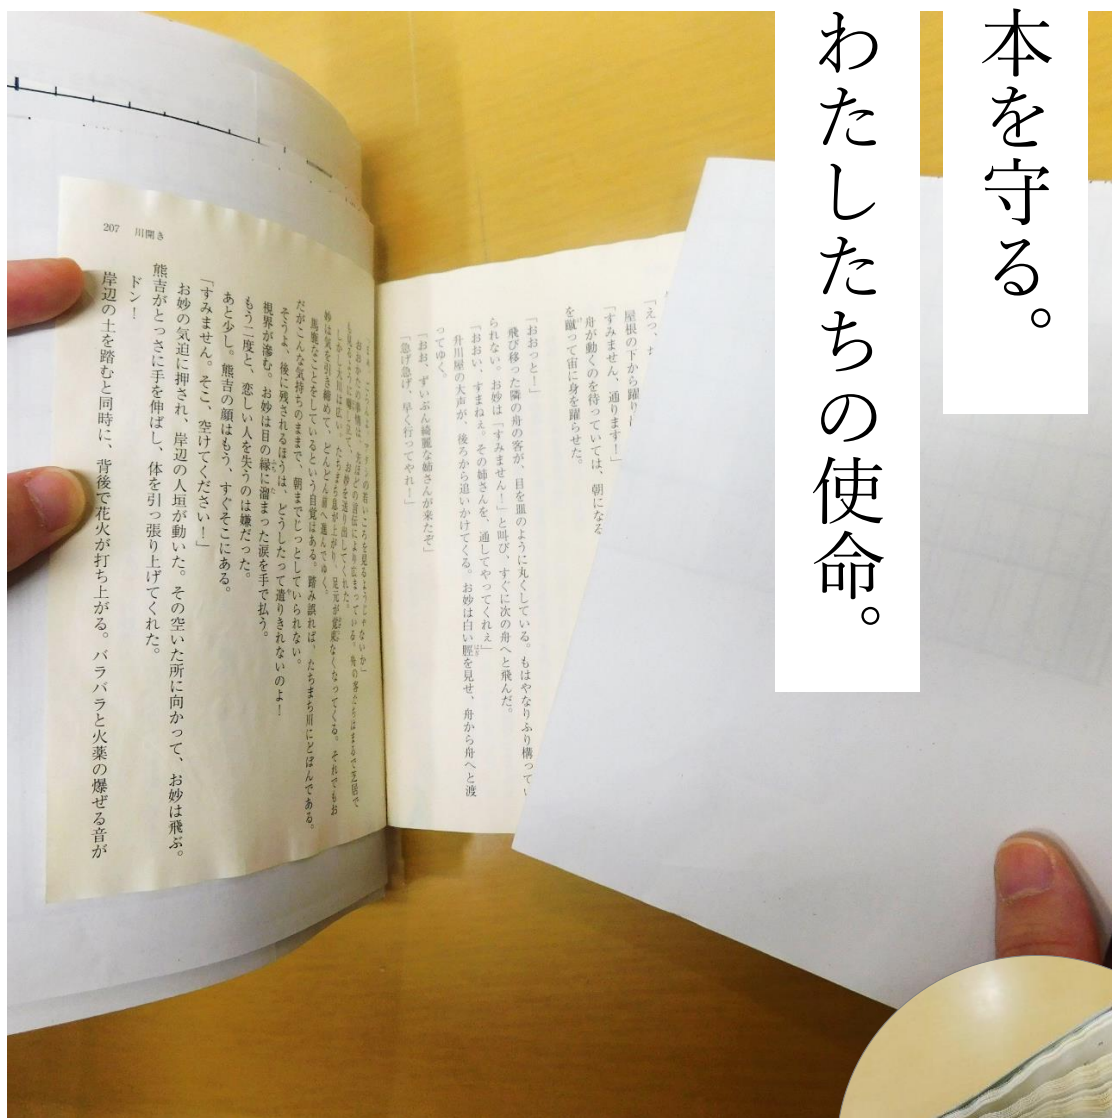 本を守る。
わたしたちの使命。
「えっ、
屋根の下から躍り
「すみません、通ります！」
舟が動くのを待っていては、朝になる
を蹴って宙に身を躍らせた。
「おおっと！」
飛び移った隣の舟の客が、目を皿のように丸くしている。もはやなりふり構ってい
られない。お妙は「すみません！」と叫び、すぐに次の舟へと飛んだ。
「おおい、すまねぇ。その姉さんを、通してやってくれぇ」
升川屋の大声が、後ろから追いかけてくる。お妙は白い脛を見せ、舟から舟へと渡
ってゆく。
「おお、ずいぶん綺麗な姉さんが来たぞ」
「急げ急げ、早く行ってやれ！」
も見るように囃し立て、お妙を送り出してくれた。
しかし大川は広い。たちまち息が上がり、足元が覚束なくなってくる。それでもお
妙は気を引き締めて、どんどん前へ進んでゆく。
馬鹿なことをしているという自覚はある。踏み誤れば、たちまち川にどぼんである。
だがこんな気持ちのままで、朝までじっとしていられない。
そうよ、後に残されるほうは、どうしたって遣りきれないのよ！
視界が滲む。お妙は目の縁に溜まった涙を手で払う。
もう二度と、恋しい人を失うのは嫌だった。
あと少し。熊吉の顔はもう、すぐそこにある。
「すみません。そこ、空けてください！」
お妙の気迫に押され、岸辺の人垣が動いた。その空いた所に向かって、お妙は飛ぶ。
熊吉がとっさに手を伸ばし、体を引っ張り上げてくれた。
ドン！
岸辺の土を踏むと同時に、背後で花火が打ち上がる。バラバラと火薬の爆ぜる音が
207 川開き